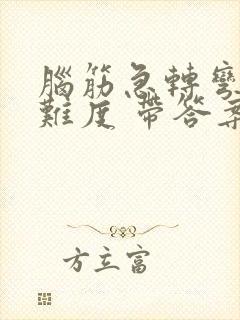 腦筋急轉彎
難度 帶答案
方立富